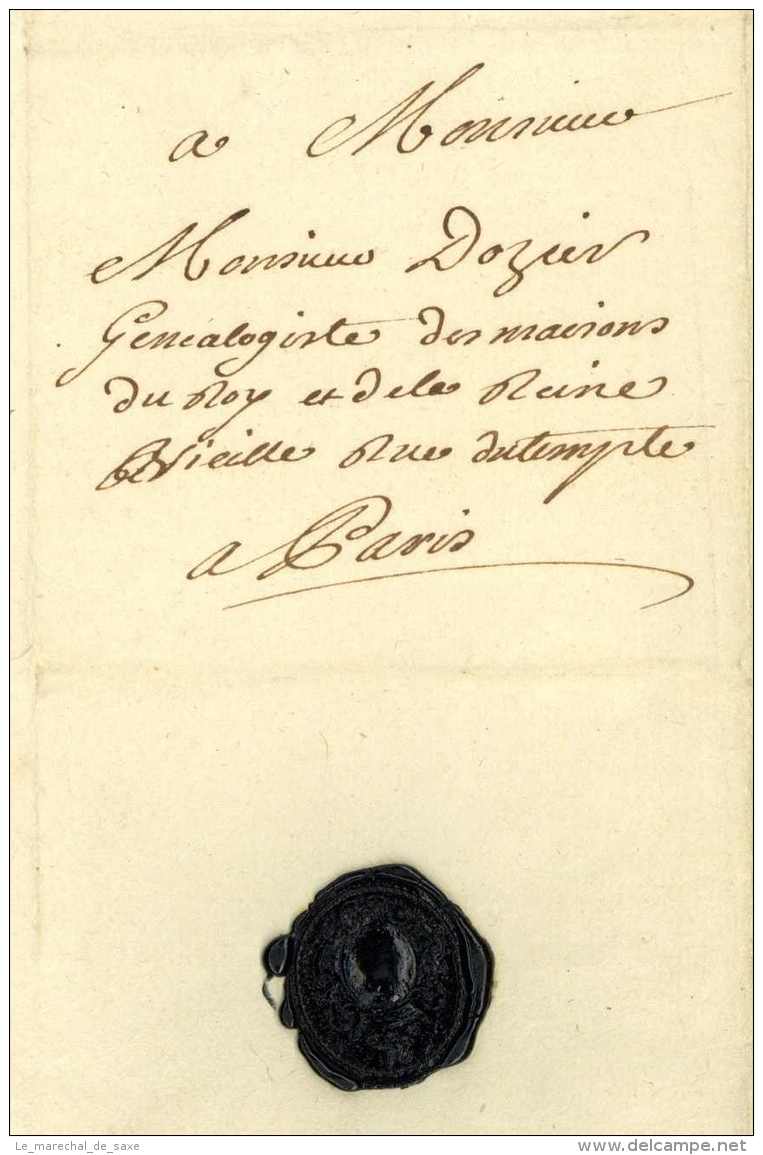 a Monsieur
Monsieur Dozier
Genealogiste des maisons
du Roy et de la Reine
Vieille Rue du temple
a Paris
Le_marechal_de_saxe
delcampe.net